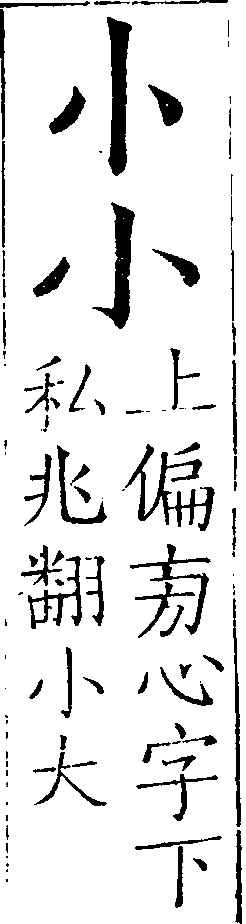 小小
上偏㫄心字下
私兆翻小大